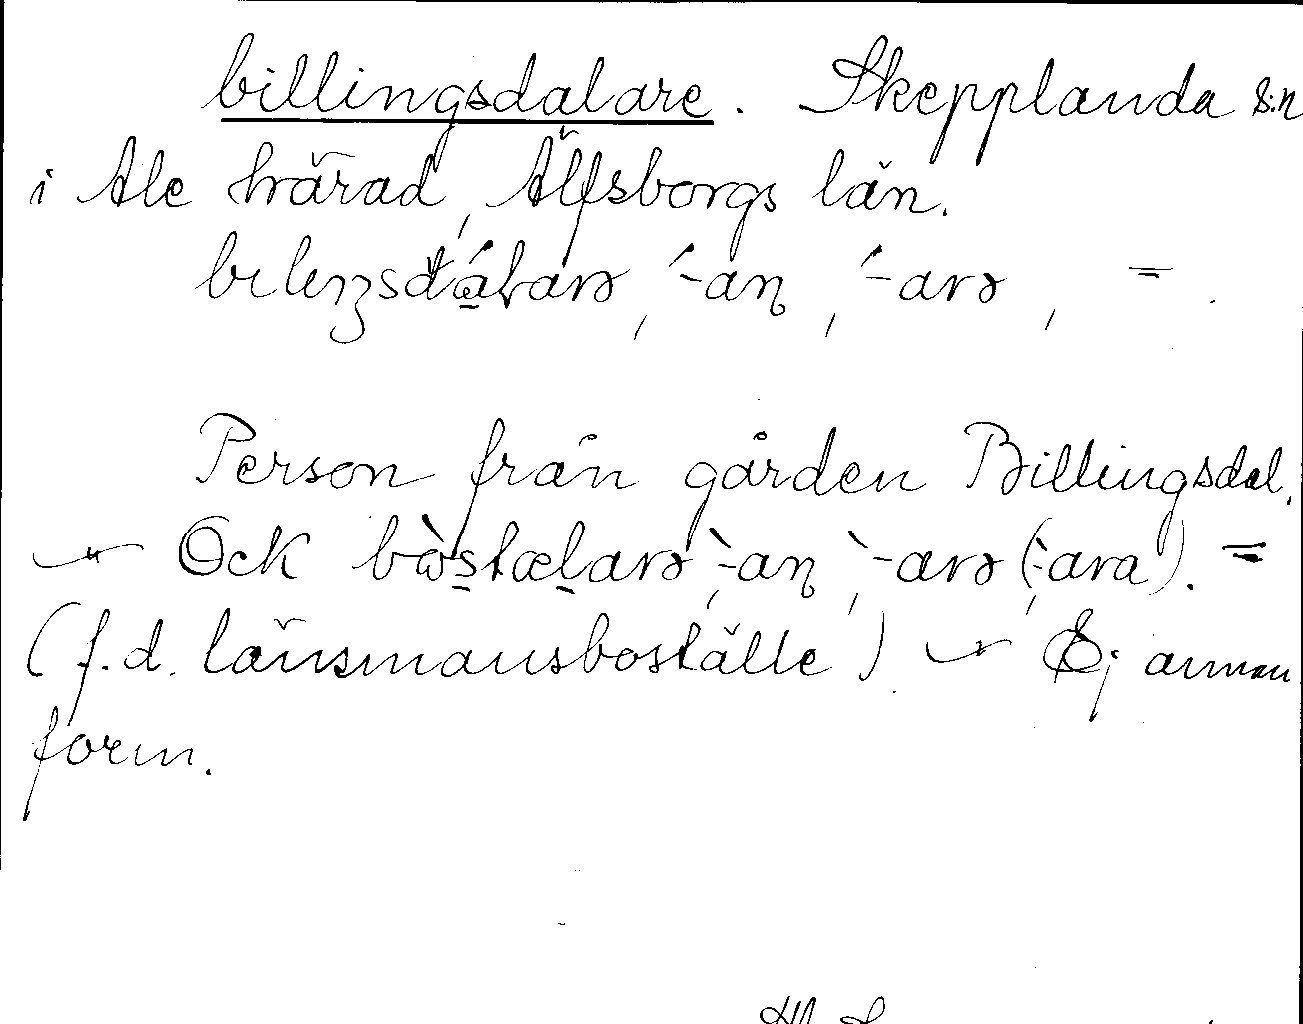 billingsdalare. Skepplanda s:n
i Ale härad, Älfsborgs län.
bileŋsdálarə, ´-an, ´-arə, =.
Person från gården Billingsdal.
— " — Ock bòstælarə `-an, `-arə (`-ara). =
(f.d. länsmansboställe) — Ej annan
form.